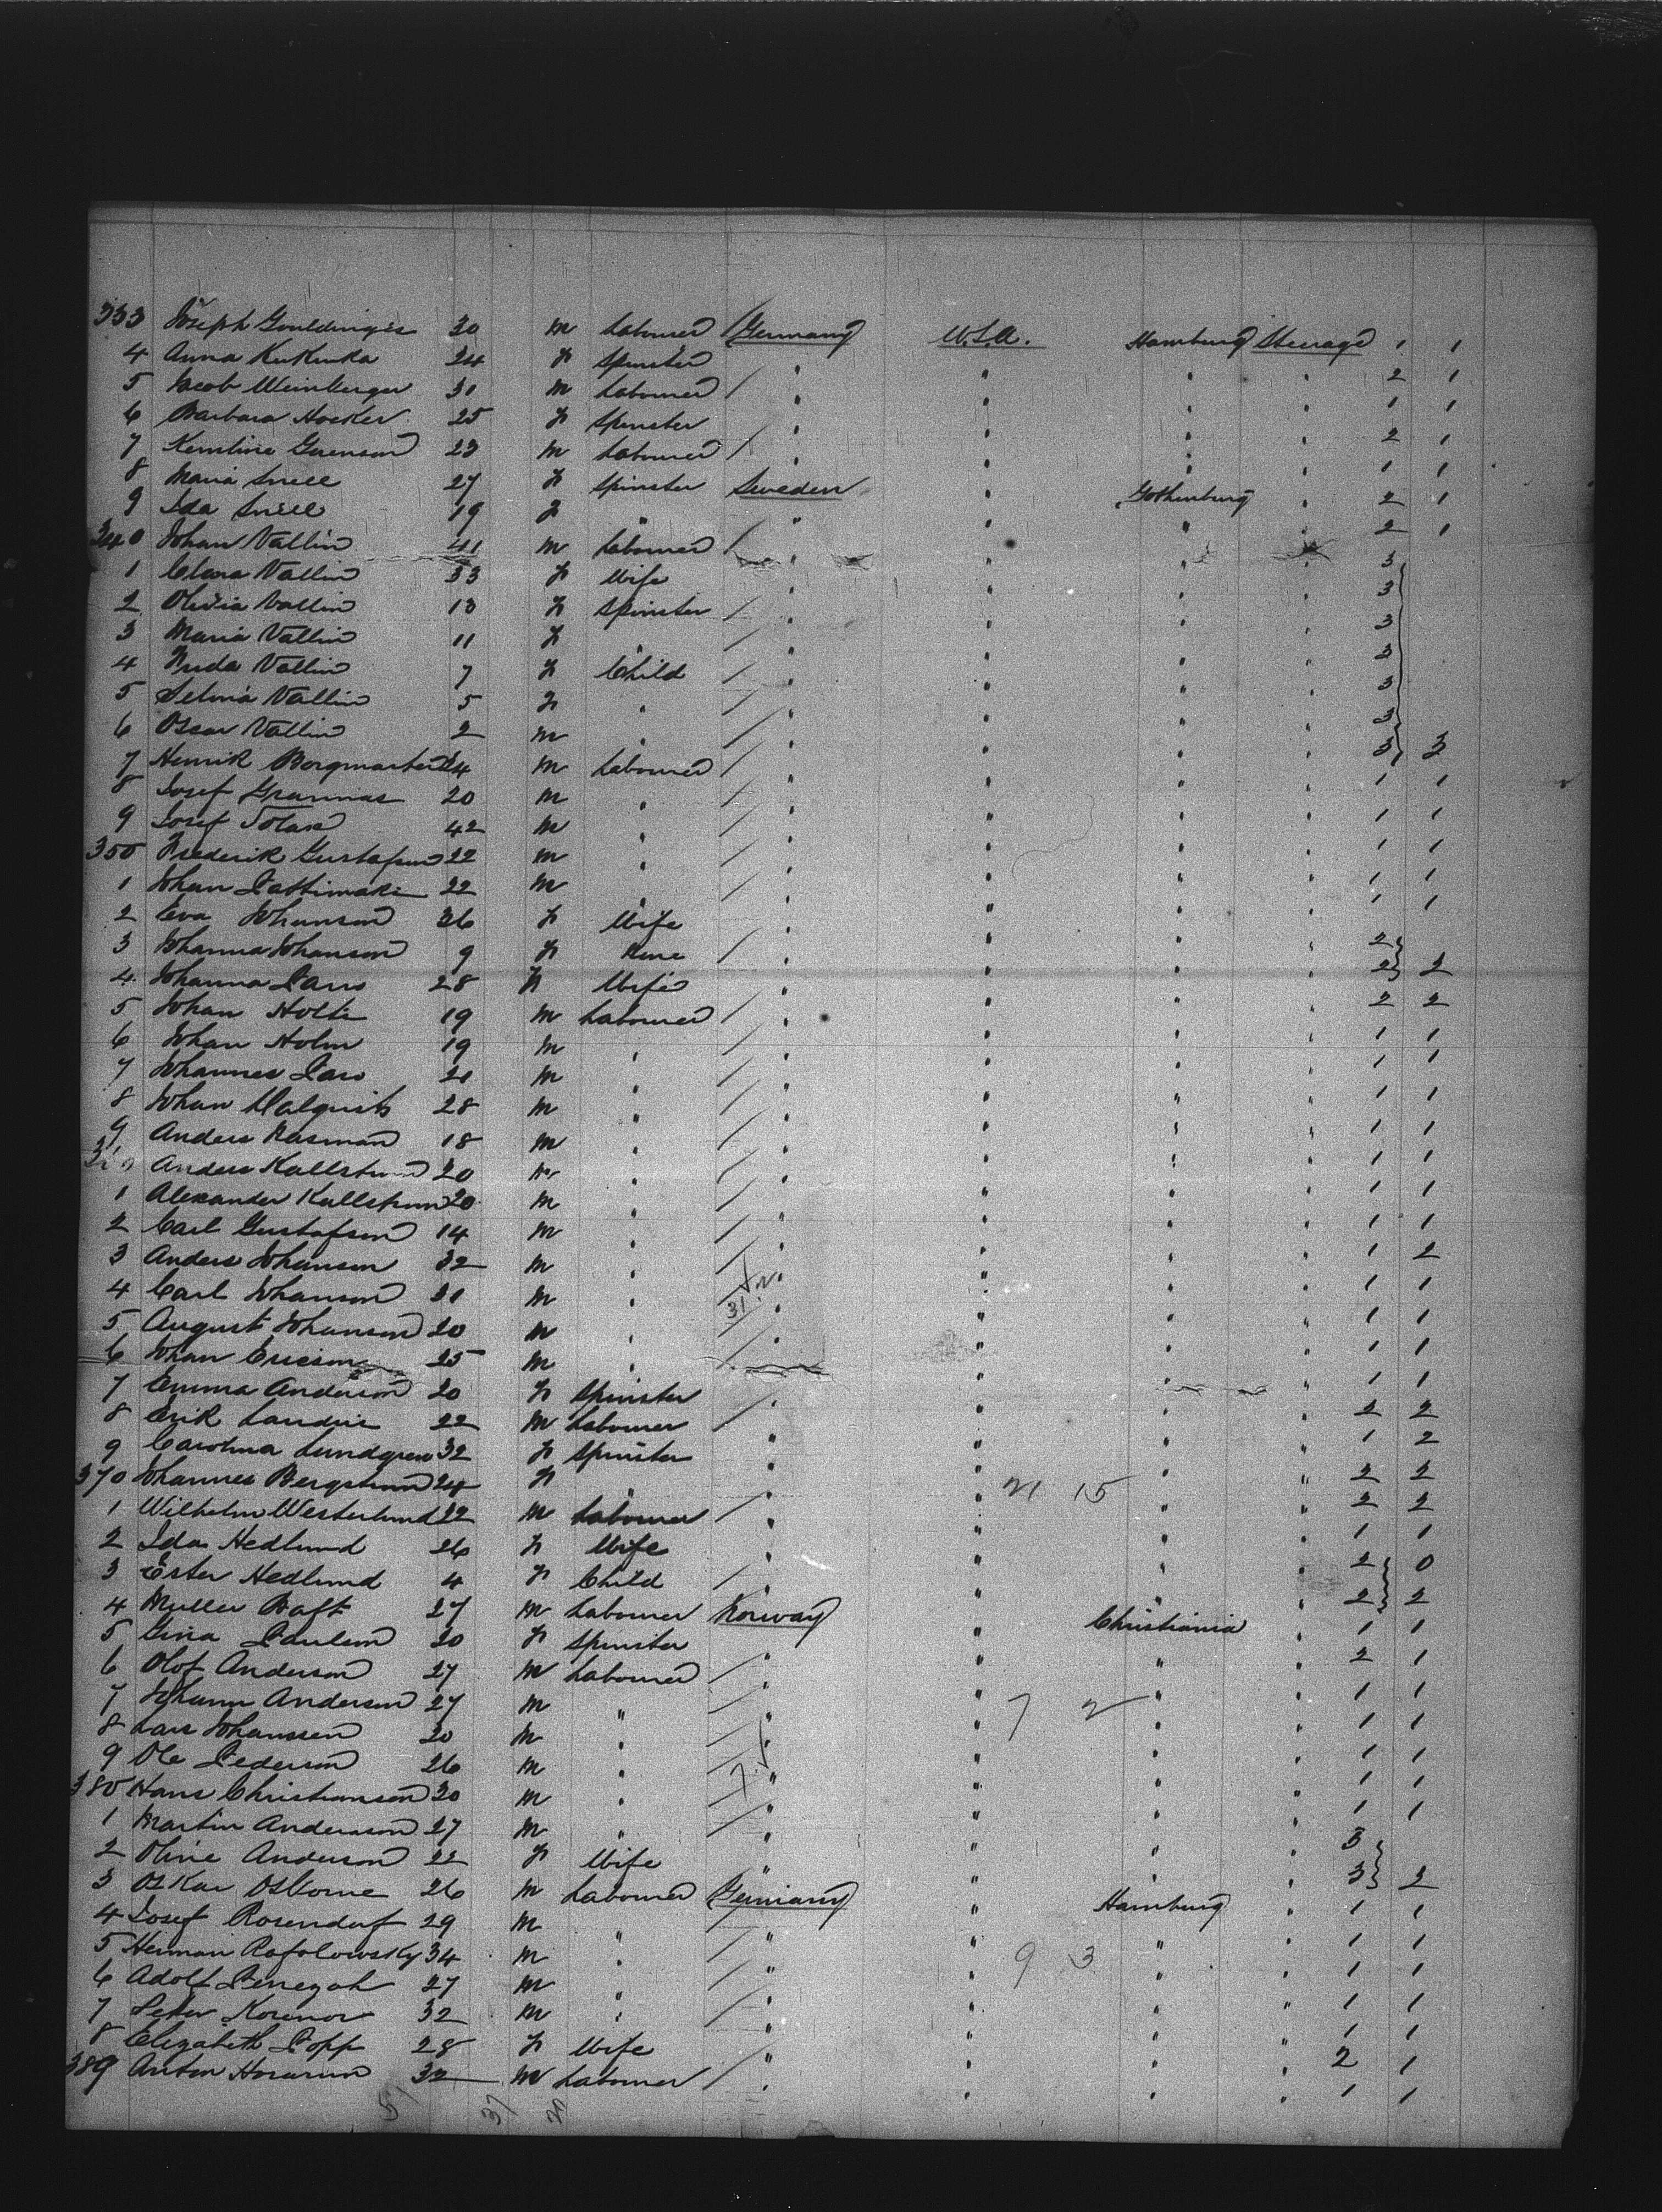 333 Joseph Gouldingis 30 m Labourer / Germany U.S.A. Hamburg Steerage 1 1
4 Anna Kukurka 24 f Spinster " " " " 2 1
5 Jacob Weinberger 31 m Labourer / " " " " 1 1
6 Barbara Hocker 25 f Spinster " " " " 2 1
7 23 m Labourer / " " " " 1 1
8 Maria Snell 27 f Spinster Sweden " Gothenburg " 2 1
9 Ida Snell 19 f " " " " " 2 1
340 Johan Vallin 41 m Labourer / " " " " 3
1 Clara Vallin 33 f Wife " " " " 3
2 Olivia Vallin 13 f Spinster / " " " " 3
3 Maria Vallin 11 f " / " " " " 3
4 Frida Vallin 7 f Child / " " " " 3
5 Selma Vallin 5 f " / " " " " 3
6 Oscar Vallin 2 m " / " " " " 3 3
7 Henrik 24 m Labourer / " " " " 1 1
8 Josef Grannas 20 m " / " " " " 1 1
9 Josef 42 m " / " " " " 1 1
350 Frederik Gustafson 22 m " / " " " " 1 1
1 Johan 22 m " / " " " " 1 1
2 Eva Johanson 36 f Wife " " " " 2
3 Johanna Johanson 9 f None / " " " " 2 2
4 Johanna 28 f Wife " " " " 2 2
5 Johan Holti 19 m Labourer / " " " " 1 1
6 Johan Holm 19 m " / " " " " 1 1
7 Johannes 21 m " / " " " " 1 1
8 Johan Malquist 28 m " / " " " " 1 1
9 Anders Rasman 18 m " / " " " " 1 1
360 Anders Kallstrom 20 m " / " " " " 1 1
1 Alexander Kallstrom 20 m " / " " " " 1 1
2 Carl Gustafson 14 m " / " " " " 1 2
3 Anders Johanson 32 m " / " " " " 1 1
4 Carl Johanson 31 m " / 31 " " " " 1 1
5 August Johanson 20 m " / " " " " 1 1
6 Johan Ericson 25 m " / " " " " 1 1
7 Emma Anderson 20 f Spinster " " " " 2 2
8 Erik 22 m Labourer / " " " " 1 2
9 Carolina Lundgren 32 f Spinster " " " " 2 2
370 Johannes Bergstrom 24 f " " " 21 15 " " 2 2
1 Wilhelm Westerlund 22 m Labourer / " " " " 1 1
2 Ida Hedlund 26 f Wife " " " " 2 0
3 Ester Hedlund 4 f Child / " " " " 2 2
4 Muller 27 m Labourer Norway " Christiania " 1 1
5 Gina Paulsen 20 f Spinster " " " " 2 1
6 Olof Anderson 27 m Labourer / " " " " 1 1
7 Johann Anderson 27 m " / " " 7 2 " " 1 1
8 Lars Johanssen 20 m " / " " " " 1 1
9 Ole Pederson 26 m " / 7 " " " " 1 1
380 Hans Christianson 20 m " / " " " " 1 1
1 Martin Andersson 27 m " / " " " " 3
2 Oline Anderson 22 f Wife " " " " 3 2
3 Oskar Osborne 26 m Labourer Germany " Hamburg " 1 1
4 Josef Rosendorf 29 m " / " " " " 1 1
5 Herman Rafolowsky 34 m " / " " 9 3 " " 1 1
6 Adolf 27 m " / " " " " 1 1
7 Peter 32 m " / " " " " 1 1
8 Elizabeth Popp 28 f Wife " " " " 2 1
389 Anton 32 m Labourer / " " " " 1 1
57 37 20